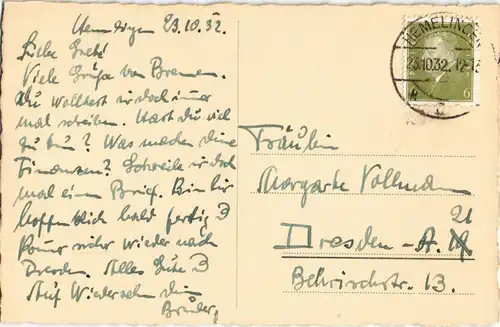 Hemelingen 23.10.32.
Liebe Grete!
Viele Grüße von Bremen.
Du wolltest mir doch immer
mal schreiben. Hast du viel
zu tun? Was machen deine
Finanzen? Schreibe mir doch
mal einen Brief. Bin hier
hoffentlich bald fertig &
komme wieder nach
Dresden. Alles Gute &
Auf Wiedersehn dein
Bruder,
HEMELINGEN
23.10.32. 12-13
6
Fräulein
Margarte Vollmann
21
Dresden-A. 19
Behrischstr. 13.